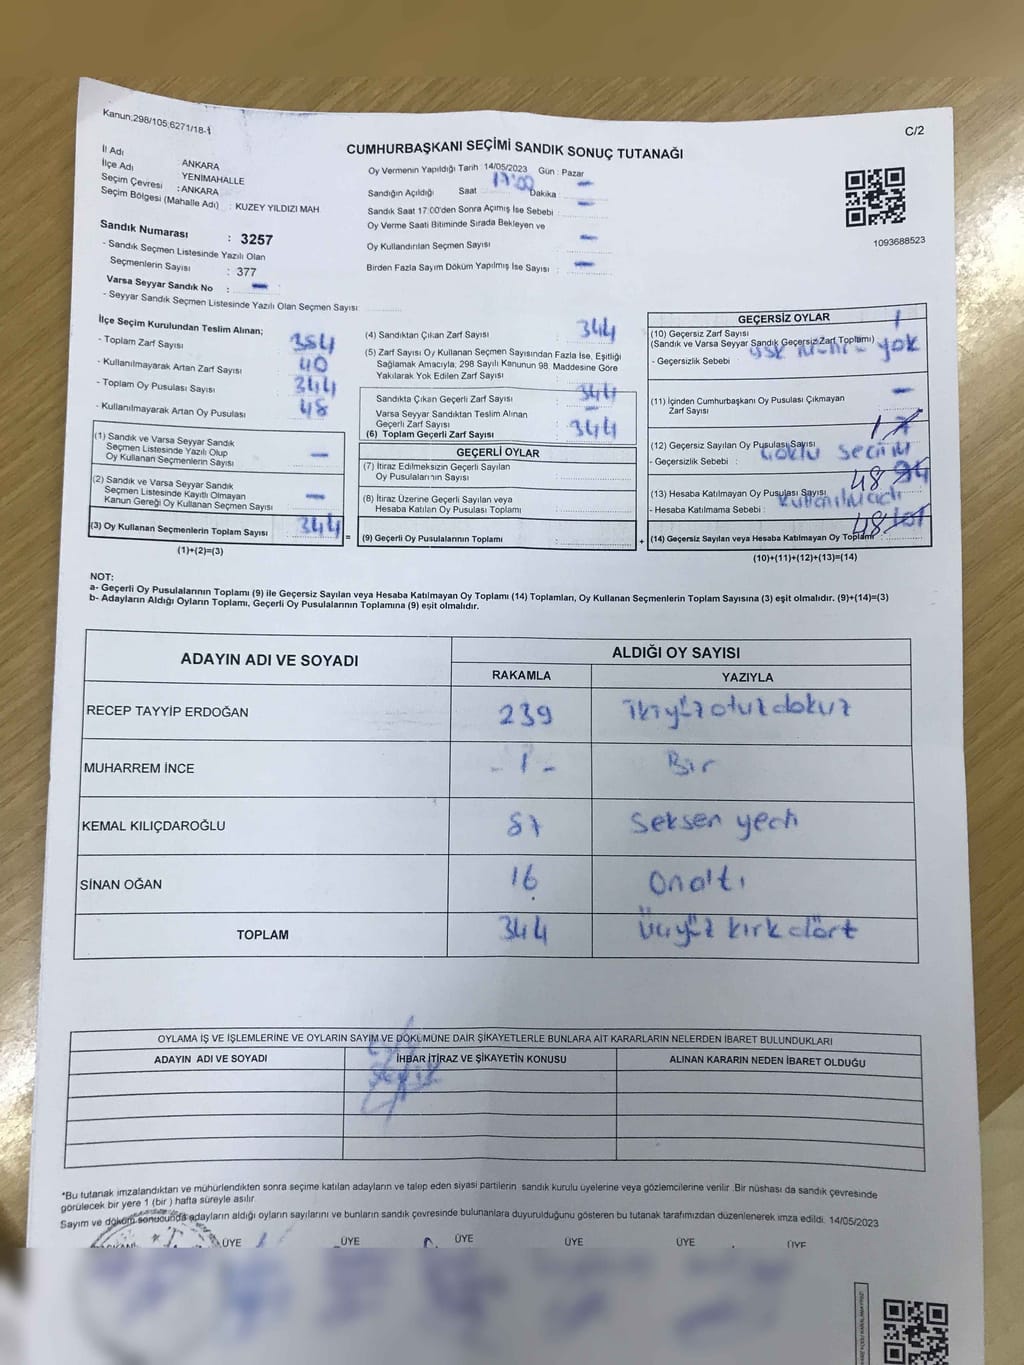 Kanun;298/105;6271/18-1
C/2
CUMHURBAŞKANI SEÇİMİ SANDIK SONUÇ TUTANAĞI
İl Adı : ANKARA
İlçe Adı : YENİMAHALLE
Seçim Çevresi : ANKARA
Seçim Bölgesi (Mahalle Adı) : KUZEY YILDIZI MAH
Sandık Numarası : 3257
- Sandık Seçmen Listesinde Yazılı Olan
Seçmenlerin Sayısı : 377
Varsa Seyyar Sandık No : -
- Seyyar Sandık Seçmen Listesinde Yazılı Olan Seçmen Sayısı:
Oy Vermenin Yapıldığı Tarih : 14/05/2023 Gün : Pazar
Sandığın Açıldığı Saat 17:00 Dakika -
Sandık Saat 17:00'den Sonra Açımış İse Sebebi : -
Oy Verme Saati Bitiminde Sırada Bekleyen ve
Oy Kullandırılan Seçmen Sayısı : -
Birden Fazla Sayım Döküm Yapılmış İse Sayısı : -
1093688523
İlçe Seçim Kurulundan Teslim Alınan;
- Toplam Zarf Sayısı : 384
- Kullanılmayarak Artan Zarf Sayısı : 40
- Toplam Oy Pusulası Sayısı : 344
- Kullanılmayarak Artan Oy Pusulası : 48
(1) Sandık ve Varsa Seyyar Sandık
Seçmen Listesinde Yazılı Olup
Oy Kullanan Seçmenlerin Sayısı : -
(2) Sandık ve Varsa Seyyar Sandık
Seçmen Listesinde Kayıtlı Olmayan
Kanun Gereği Oy Kullanan Seçmen Sayısı : -
(3) Oy Kullanan Seçmenlerin Toplam Sayısı : 344
(1)+(2)=(3)
=
(4) Sandıktan Çıkan Zarf Sayısı : 344
(5) Zarf Sayısı Oy Kullanan Seçmen Sayısından Fazla İse, Eşitliği
Sağlamak Amacıyla, 298 Sayılı Kanunun 98. Maddesine Göre
Yakılarak Yok Edilen Zarf Sayısı : -
Sandıkta Çıkan Geçerli Zarf Sayısı : 344
Varsa Seyyar Sandıktan Teslim Alınan
Geçerli Zarf Sayısı : -
(6) Toplam Geçerli Zarf Sayısı : 344
GEÇERLİ OYLAR
(7) İtiraz Edilmeksizin Geçerli Sayılan
Oy Pusulaları'nın Sayısı :
(8) İtiraz Üzerine Geçerli Sayılan veya
Hesaba Katılan Oy Pusulası Toplamı :
(9) Geçerli Oy Pusulalarının Toplamı :
+
GEÇERSİZ OYLAR
(10) Geçersiz Zarf Sayısı 1
(Sandık ve Varsa Seyyar Sandık Geçersiz Zarf Toplamı)
- Geçersizlik Sebebi : yok
(11) İçinden Cumhurbaşkanı Oy Pusulası Çıkmayan -
Zarf Sayısı
(12) Geçersiz Sayılan Oy Pusulası Sayısı
- Geçersizlik Sebebi :
(13) Hesaba Katılmayan Oy Pusulası Sayısı 48 94
- Hesaba Katılmama Sebebi :
(14) Geçersiz Sayılan veya Hesaba Katılmayan Oy Toplamı : 48 101
(10)+(11)+(12)+(13)=(14)
NOT:
a- Geçerli Oy Pusulalarının Toplamı (9) ile Geçersiz Sayılan veya Hesaba Katılmayan Oy Toplamı (14) Toplamları, Oy Kullanan Seçmenlerin Toplam Sayısına (3) eşit olmalıdır. (9)+(14)=(3)
b- Adayların Aldığı Oyların Toplamı, Geçerli Oy Pusulalarının Toplamına (9) eşit olmalıdır.
ADAYIN ADI VE SOYADI
ALDIĞI OY SAYISI
RAKAMLA YAZIYLA
RECEP TAYYİP ERDOĞAN 239 ikiyüz otuz dokuz
MUHARREM İNCE - 1 - Bir
KEMAL KILIÇDAROĞLU 87 Seksen yedi
SİNAN OĞAN 16 Onaltı
TOPLAM 344 Üçyüz kırk dört
OYLAMA İŞ VE İŞLEMLERİNE VE OYLARIN SAYIM VE DÖKÜMÜNE DAİR ŞİKAYETLERLE BUNLARA AİT KARARLARIN NELERDEN İBARET BULUNDUKLARI
ADAYIN ADI VE SOYADI İHBAR İTİRAZ VE ŞİKAYETİN KONUSU ALINAN KARARIN NEDEN İBARET OLDUĞU
*Bu tutanak imzalandıktan ve mühürlendikten sonra seçime katılan adayların ve talep eden siyasi partilerin sandık kurulu üyelerine veya gözlemcilerine verilir. Bir nüshası da sandık çevresinde
görülecek bir yere 1 (bir ) hafta süreyle asılır.
Sayım ve döküm sonucunda adayların aldığı oyların sayılarını ve bunların sandık çevresinde bulunanlara duyurulduğunu gösteren bu tutanak tarafımızdan düzenlenerek imza edildi. 14/05/2023
ÜYE ÜYE ÜYE ÜYE ÜYE ÜYE